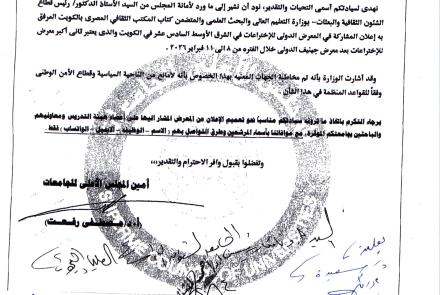 نهدى لسيادتكم أسمى التحيات والتقدير، نود أن نشير إلى ما ورد لأمانة المجلس من السيد الأستاذ الدكتور/ رئيس قطاع
الشئون الثقافية والبعثات- بوزارة التعليم العالى والبحث العلمى والمتضمن كتاب المكتب الثقافى المصرى بالكويت المرفق
به إعلان المشاركة في المعرض الدولى للإختراعات في الشرق الأوسط السادس عشر في الكويت والذى يعتبر ثانى أكبر معرض
للإختراعات بعد معرض جينيف الدولى خلال الفتره من ٨ إلى ١١ فبراير ٢٠٢٦
وقد أشارت الوزارة بأنه تم مخاطبة الجهات المعنيه بهذا الخصوص بأنه لامانع من الناحية السياسية وقطاع الأمن الوطنى
وفقاً للقواعد المنظمة في هذا الشأن
برجاء التكرم باتخاذ ما ترونه سيادتكم مناسباً نحو تعميم الإعلان عن المعرض المشار اليها على أعضاء هيئة التدريس ومعاونيهم
والباحثين بجامعتكم الموقرة, مع موافاتنا بأسماء المرشحين وطرق التواصل بهم , الاسم – الوظيفة – الايميل – الواتساب , فقط
وتفضلوا بقبول وافر الاحترام والتقدير,,,
أمين المجلس الأعلى للجامعات
(أ.د/مصطفى رفعت)